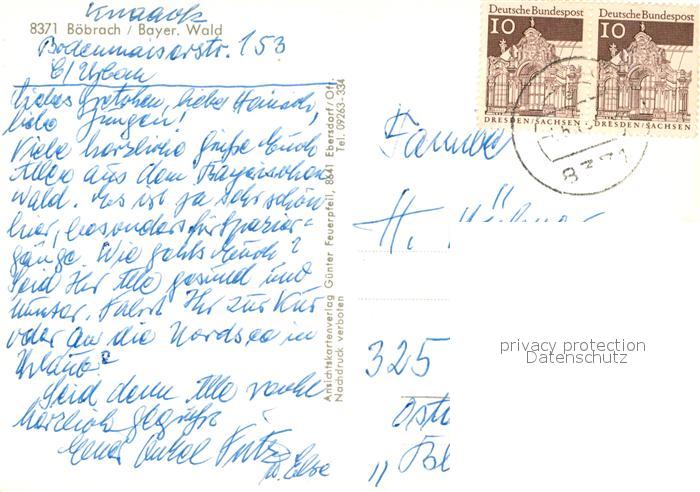 Knaack
8371 Böbrach / Bayer. Wald
Bodenmaiserstr. 153
b/Urban
Liebes Gretchen, lieber Heinrich,
liebe Jungen!
Viele herzliche Grüße Euch
Allen aus dem Bayrischen
Wald. Es ist ja sehr schön
hier, besonders für Spazier=
gänge. Wie gehts Euch?
Seid Ihr Alle gesund und
munter. Fahrt Ihr zur Kur
oder an die Nordsee in
Urlaub?
Seid denn Alle recht
herzlich gegrüßt
Euer Onkel Fritz
u. Else
Ansichtskartenverlag Günter Feuerpfeil, 8641 Ebersdorf/Ofr.
Tel. 09263-334
Nachdruck verboten
Deutsche Bundespost Deutsche Bundespost
10 10
DRESDEN/SACHSEN DRESDEN/SACHSEN
8371
Familie
H.
325
privacy protection
Datenschutz